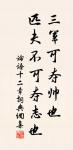 三軍可夺帅也
匹夫不可夺志也
论语十二章词典调集